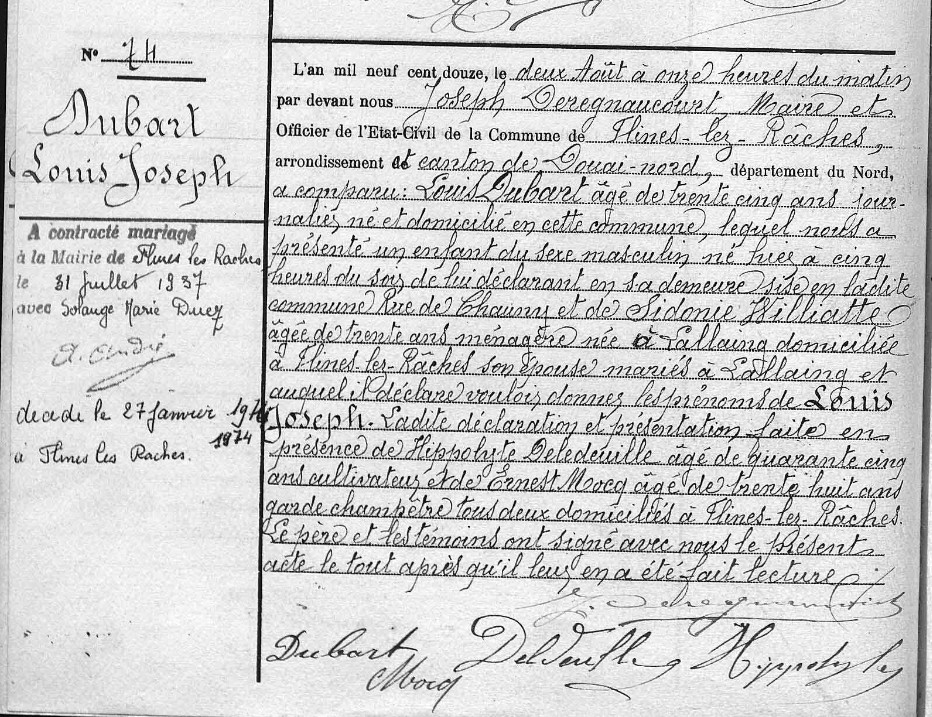 N° 74
Dubart
Louis Joseph
A contracté mariage
à la Mairie de Flines les Raches
le 31 juillet 1937
avec Solange Marie Duez
décédé le 27 Janvier 1974
1974
à Flines les Raches.
L'an mil neuf cent douze, le deux Août à onze heures du matin
par devant nous Joseph Deregnaucourt Maire et
Officier de l'Etat-Civil de la Commune de Flines-lez-Râches,
arrondissement et canton de Douai-nord, département du Nord,
a comparu: Louis Dubart âgé de trente cinq ans jour-
nalier, né et domicilié en cette commune, lequel nous a
présenté un enfant du sexe masculin né hier à cinq
heures du soir, de lui déclarant en sa demeure sise en ladite
commune Rue de Chauny et de Sidonie Williatte
âgée de trente ans ménagère née à Lallaing domiciliée
à Flines-lez-Râches son épouse mariés à Lallaing et
auquel il déclare vouloir donner les prénoms de Louis
Joseph. Ladite déclaration et présentation faite en
présence de Hippolyte Deledeuille âgé de quarante cinq
ans cultivateur et de Ernest Mocq âgé de trente huit ans
garde champêtre tous deux domiciliés à Flines-lez-Râches.
Le père et les témoins ont signé avec nous le présent
acte le tout après qu'il leur en a été fait lecture
Dubart Deldeuille Hippolyte
Mocq